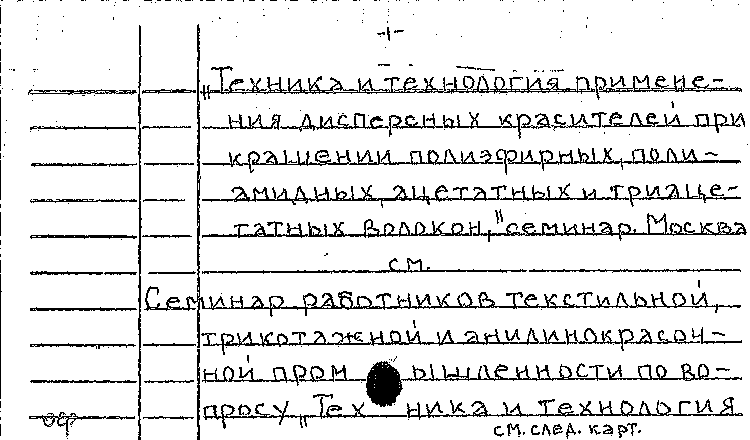 -1-
„Техника и технология примене-
ния дисперсных красителей при
крашении полиэфирных, поли-
амидных, ацетатных и триаце-
татных волокон," семинар. Москва
см.
Семинар работников текстильной,
трикотажной и анилинокрасоч-
ной пром ышленности по во-
просу „Тех ника и технология
см. след. карт.